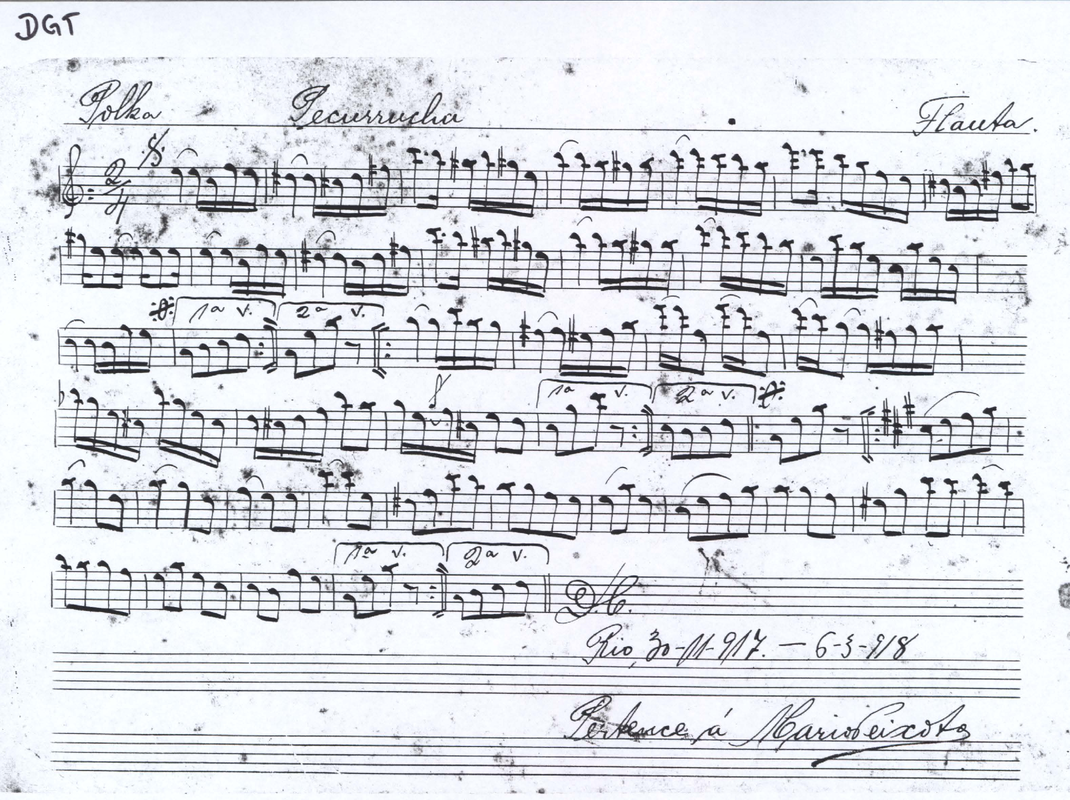 DGT
Polka Pecurrucha Flauta.
2/4
1ª v. 2ª v.
1ª v. 2ª v.
1ª v. 2ª v.
D.C.
Rio, 30-11-917. — 6-3-918
Pertence á Mario Peixoto